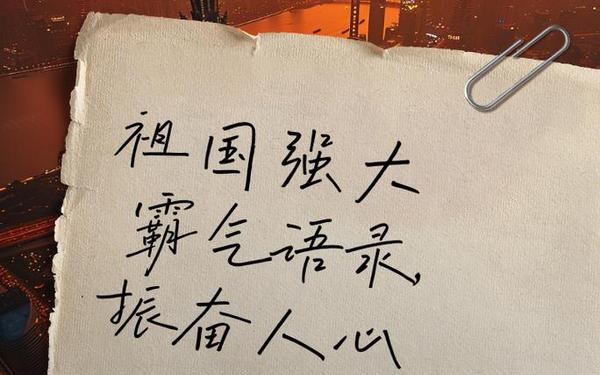 祖国强大
霸气语录,
振奋人心